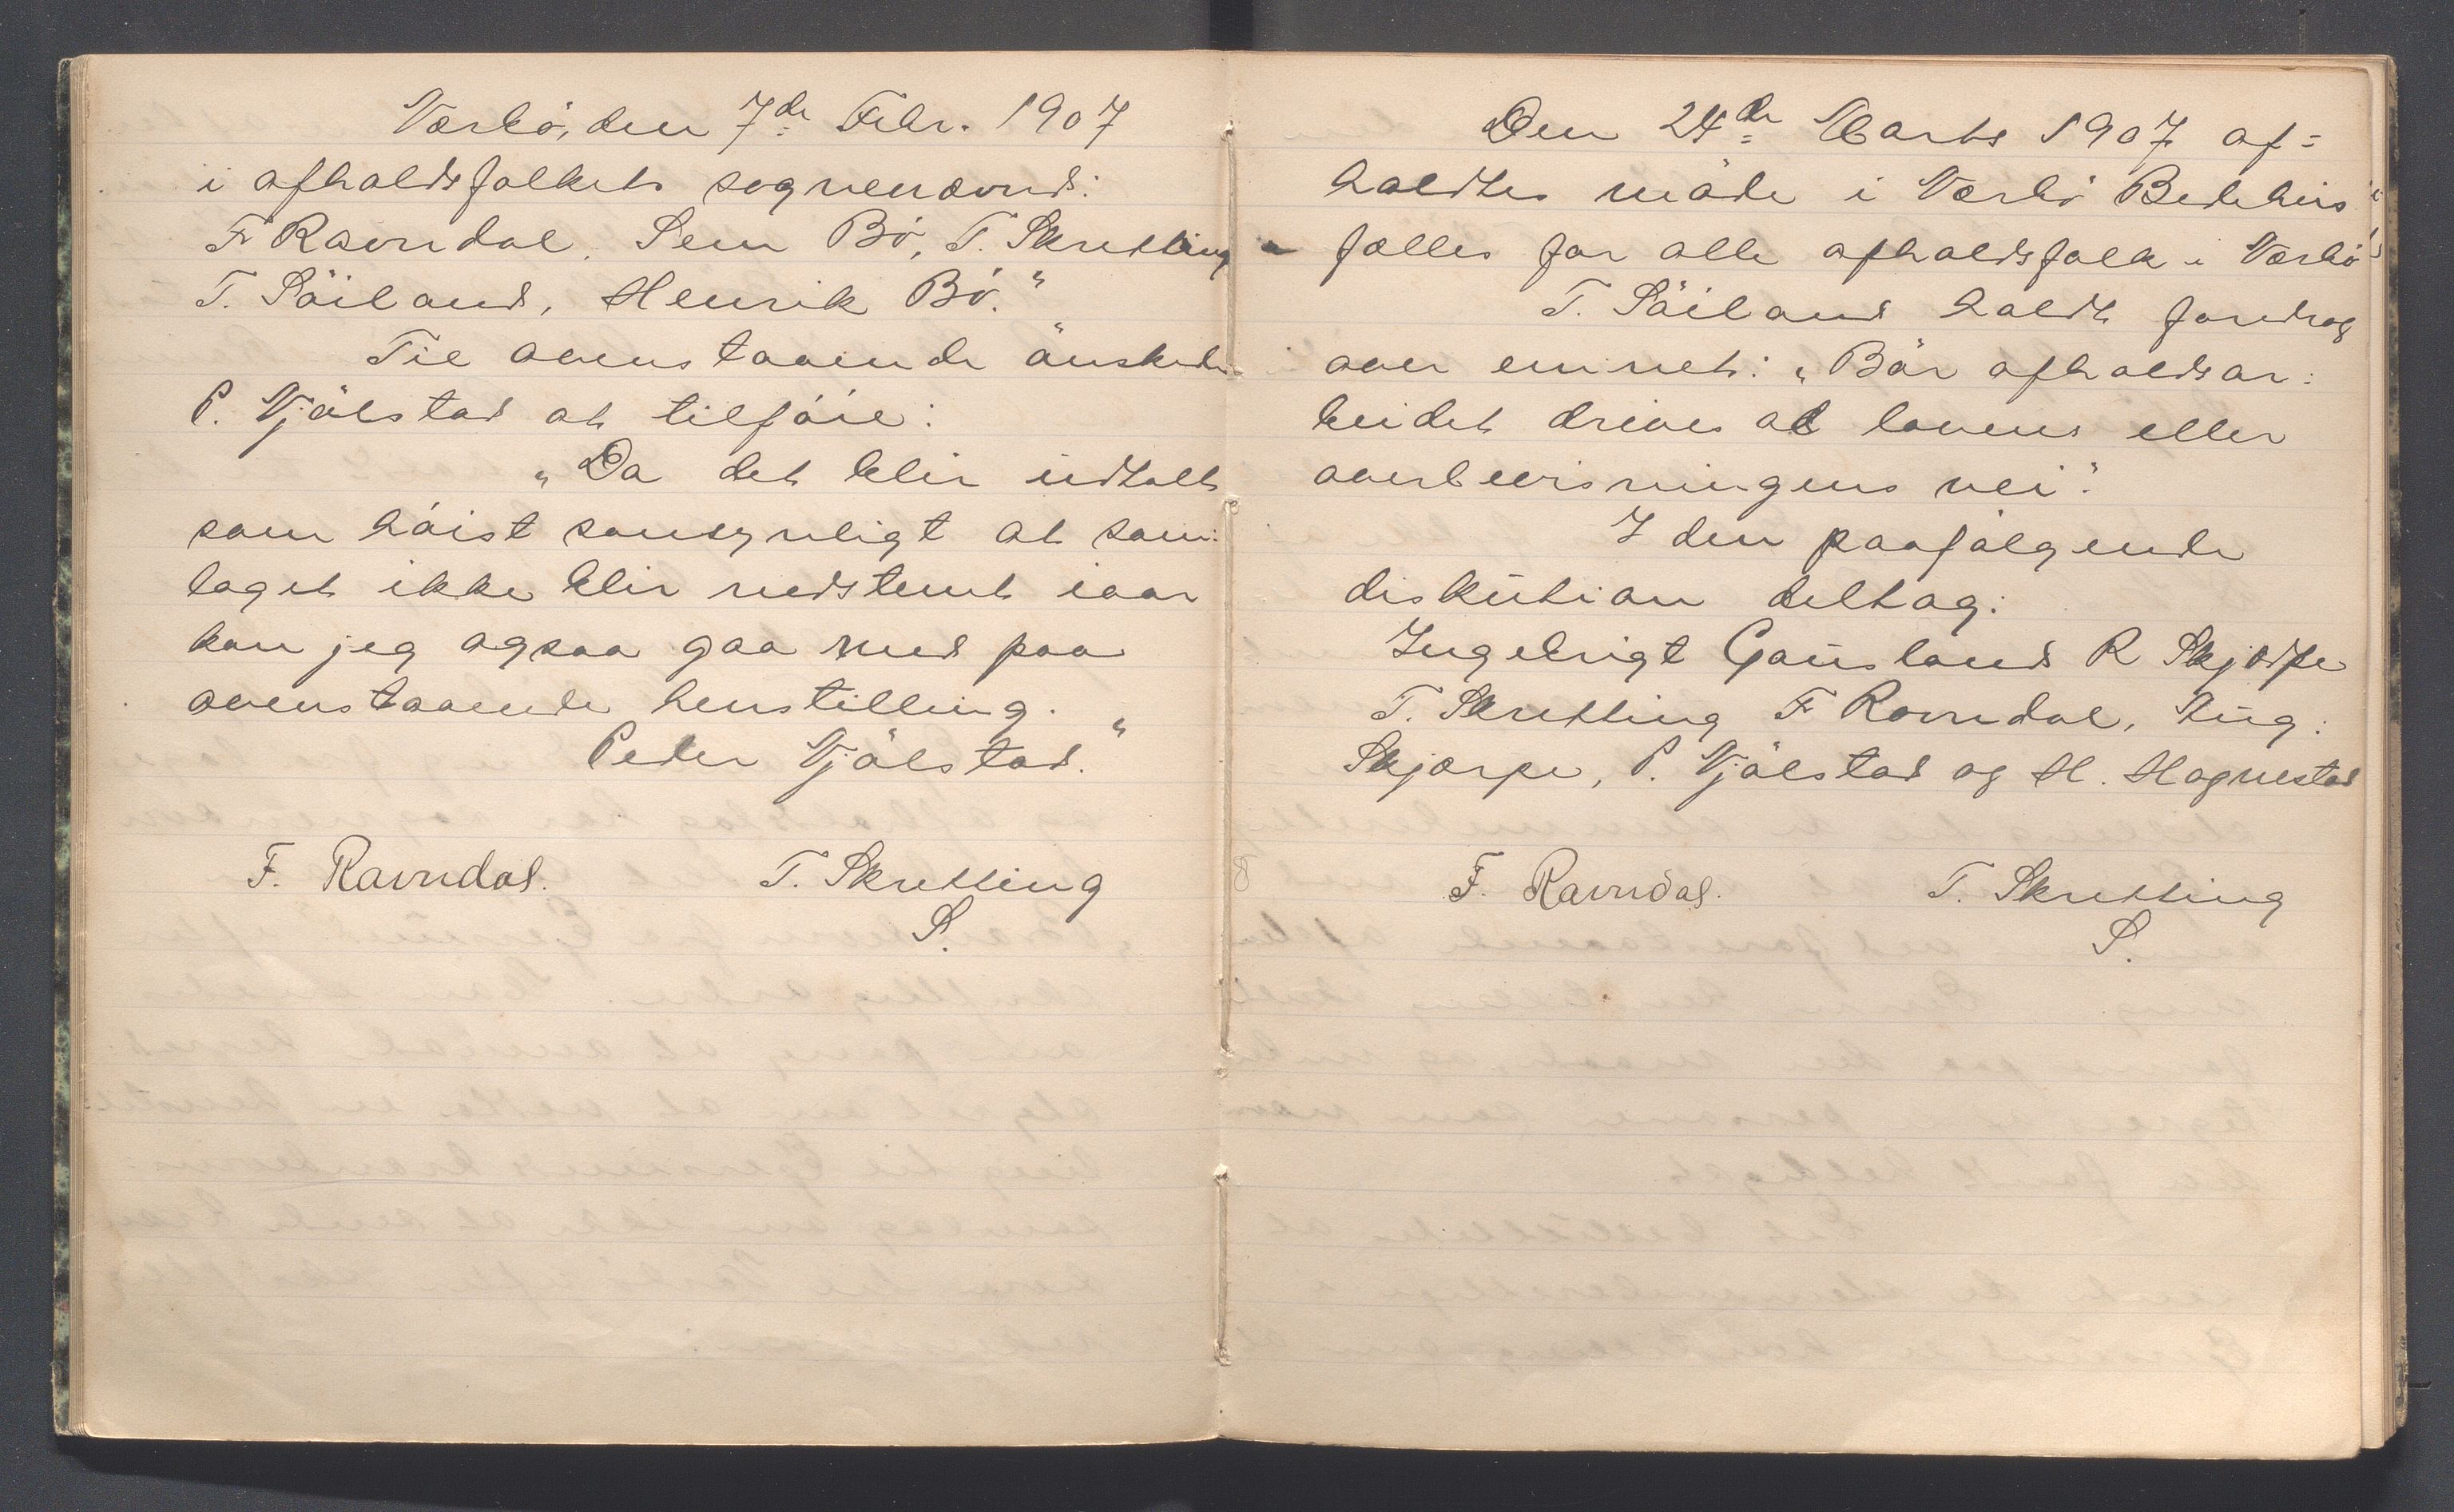 Varhö, den 7de Febr. 1907
i afholdsfolkets sognenævnd:
F Ravndal, Sem Bö, T. Skretting
T. Söiland, Henrik Bö."
Til ovenstaaende önskede
P. Vjölstad at tilföie:
"Da det blir udtalt
som höist sansynligt at sam:
laget ikke blir nedstemt iaar
kan jeg ogsaa gaa med paa
ovenstaaende henstilling.
Peder Vjölstad."
F. Ravndal. T. Skretting
S.
Den 24de Marts 1907 af=
holdtes möde i Varhö Bedehus
fælles for alle afholdsfolk i Varhö
T. Söiland holdt foredrag
over emnet: "Bör afholdsar:
beidet drives ad lovens eller
overbevisningens vei".
I den paafölgende
diskution deltog:
Ingebrigt Gausland R Skjærpe
T. Skretting F Ravndal, Aug:
Skjærpe, P. Vjölstad og H. Hognestad
F. Ravndal. T. Skretting
S.